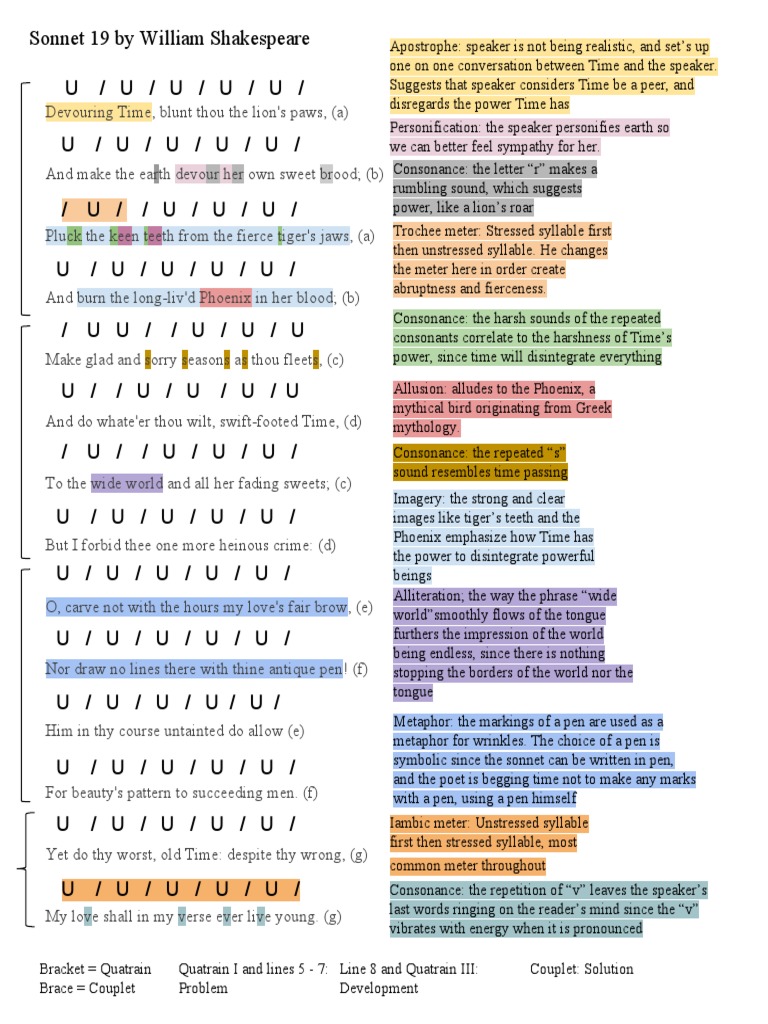 Sonnet 19 by William Shakespeare
U / U / U / U / U /
Devouring Time, blunt thou the lion's paws, (a)
U / U / U / U / U /
And make the earth devour her own sweet brood; (b)
/ U / / U / U / U /
Pluck the keen teeth from the fierce tiger's jaws, (a)
U / U / U / U / U /
And burn the long-liv'd Phoenix in her blood; (b)
/ U U / U / U / U
Make glad and sorry seasons as thou fleets, (c)
U / U / U / U / U
And do whate'er thou wilt, swift-footed Time, (d)
/ U / U / U / U /
To the wide world and all her fading sweets; (c)
U / U / U / U / U /
But I forbid thee one more heinous crime: (d)
U / U / U / U / U /
O, carve not with the hours my love's fair brow, (e)
U / U / U / U / U /
Nor draw no lines there with thine antique pen! (f)
U / U / U / U / U /
Him in thy course untainted do allow (e)
U / U / U / U / U /
For beauty's pattern to succeeding men. (f)
U / U / U / U / U /
Yet do thy worst, old Time: despite thy wrong, (g)
U / U / U / U / U /
My love shall in my verse ever live young. (g)
Apostrophe: speaker is not being realistic, and set's up
one on one conversation between Time and the speaker.
Suggests that speaker considers Time be a peer, and
disregards the power Time has
Personification: the speaker personifies earth so
we can better feel sympathy for her.
Consonance: the letter “r” makes a
rumbling sound, which suggests
power, like a lion's roar
Trochee meter: Stressed syllable first
then unstressed syllable. He changes
the meter here in order create
abruptness and fierceness.
Consonance: the harsh sounds of the repeated
consonants correlate to the harshness of Time's
power, since time will disintegrate everything
Allusion: alludes to the Phoenix, a
mythical bird originating from Greek
mythology.
Consonance: the repeated “s”
sound resembles time passing
Imagery: the strong and clear
images like tiger's teeth and the
Phoenix emphasize how Time has
the power to disintegrate powerful
beings
Alliteration; the way the phrase “wide
world”smoothly flows of the tongue
furthers the impression of the world
being endless, since there is nothing
stopping the borders of the world nor the
tongue
Metaphor: the markings of a pen are used as a
metaphor for wrinkles. The choice of a pen is
symbolic since the sonnet can be written in pen,
and the poet is begging time not to make any marks
with a pen, using a pen himself
Iambic meter: Unstressed syllable
first then stressed syllable, most
common meter throughout
Consonance: the repetition of “v” leaves the speaker's
last words ringing on the reader's mind since the “v”
vibrates with energy when it is pronounced
Bracket = Quatrain
Brace = Couplet
Quatrain I and lines 5 - 7:
Problem
Line 8 and Quatrain III:
Development
Couplet: Solution